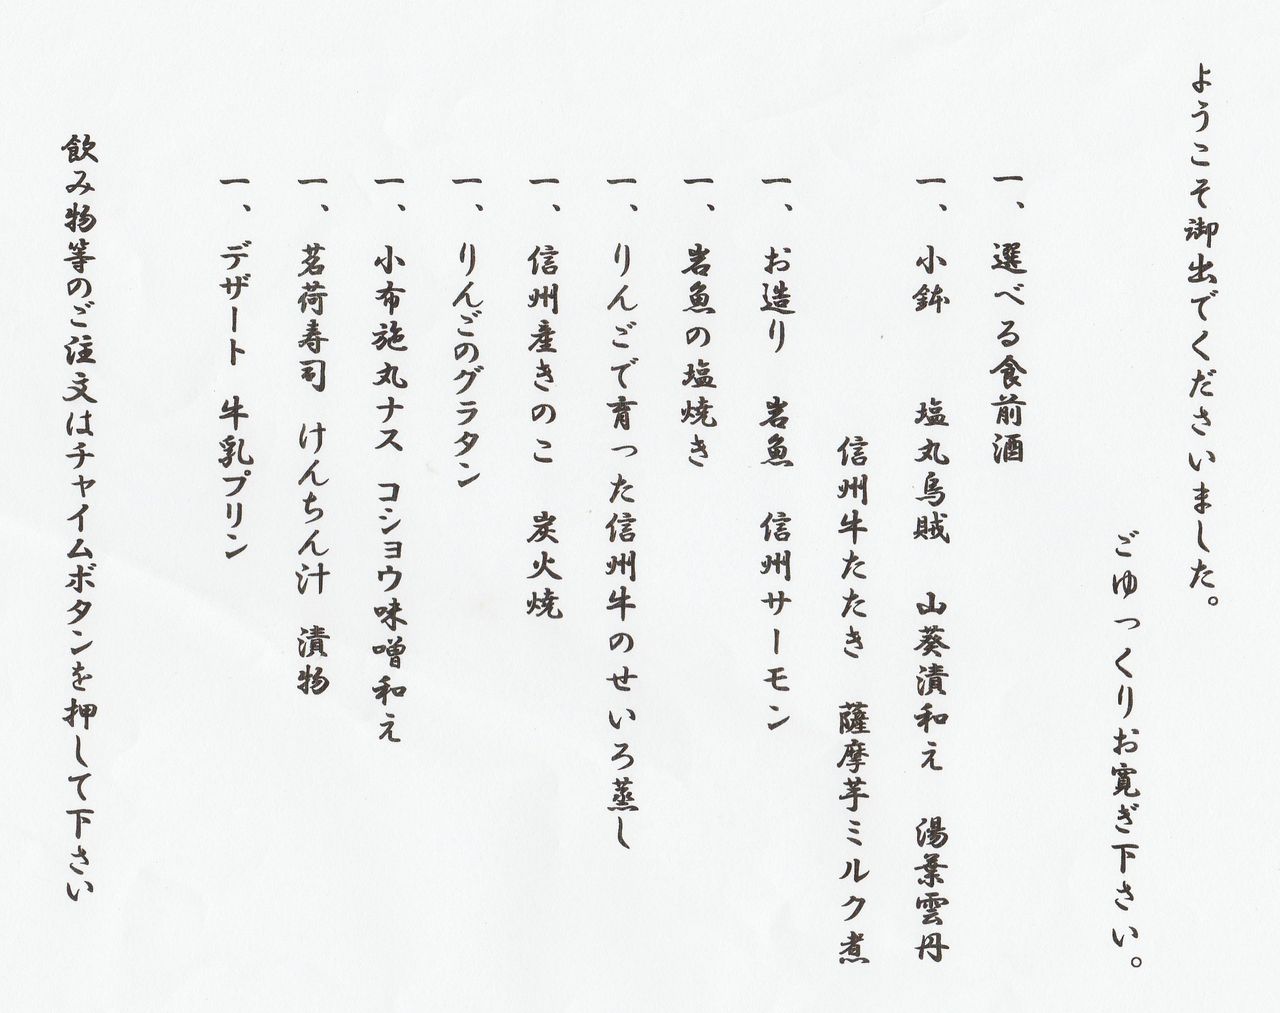 ようこそ御出でくださいました。
ごゆっくりお寛ぎ下さい。
一、選べる食前酒
一、小鉢　塩丸烏賊　山葵漬和え　湯葉雲丹
信州牛たたき　薩摩芋ミルク煮
一、お造り　岩魚　信州サーモン
一、岩魚の塩焼き
一、りんごで育った信州牛のせいろ蒸し
一、信州産きのこ　炭火焼
一、りんごのグラタン
一、小布施丸ナス　コショウ味噌和え
一、茗荷寿司　けんちん汁　漬物
一、デザート　牛乳プリン
飲み物等のご注文はチャイムボタンを押して下さい